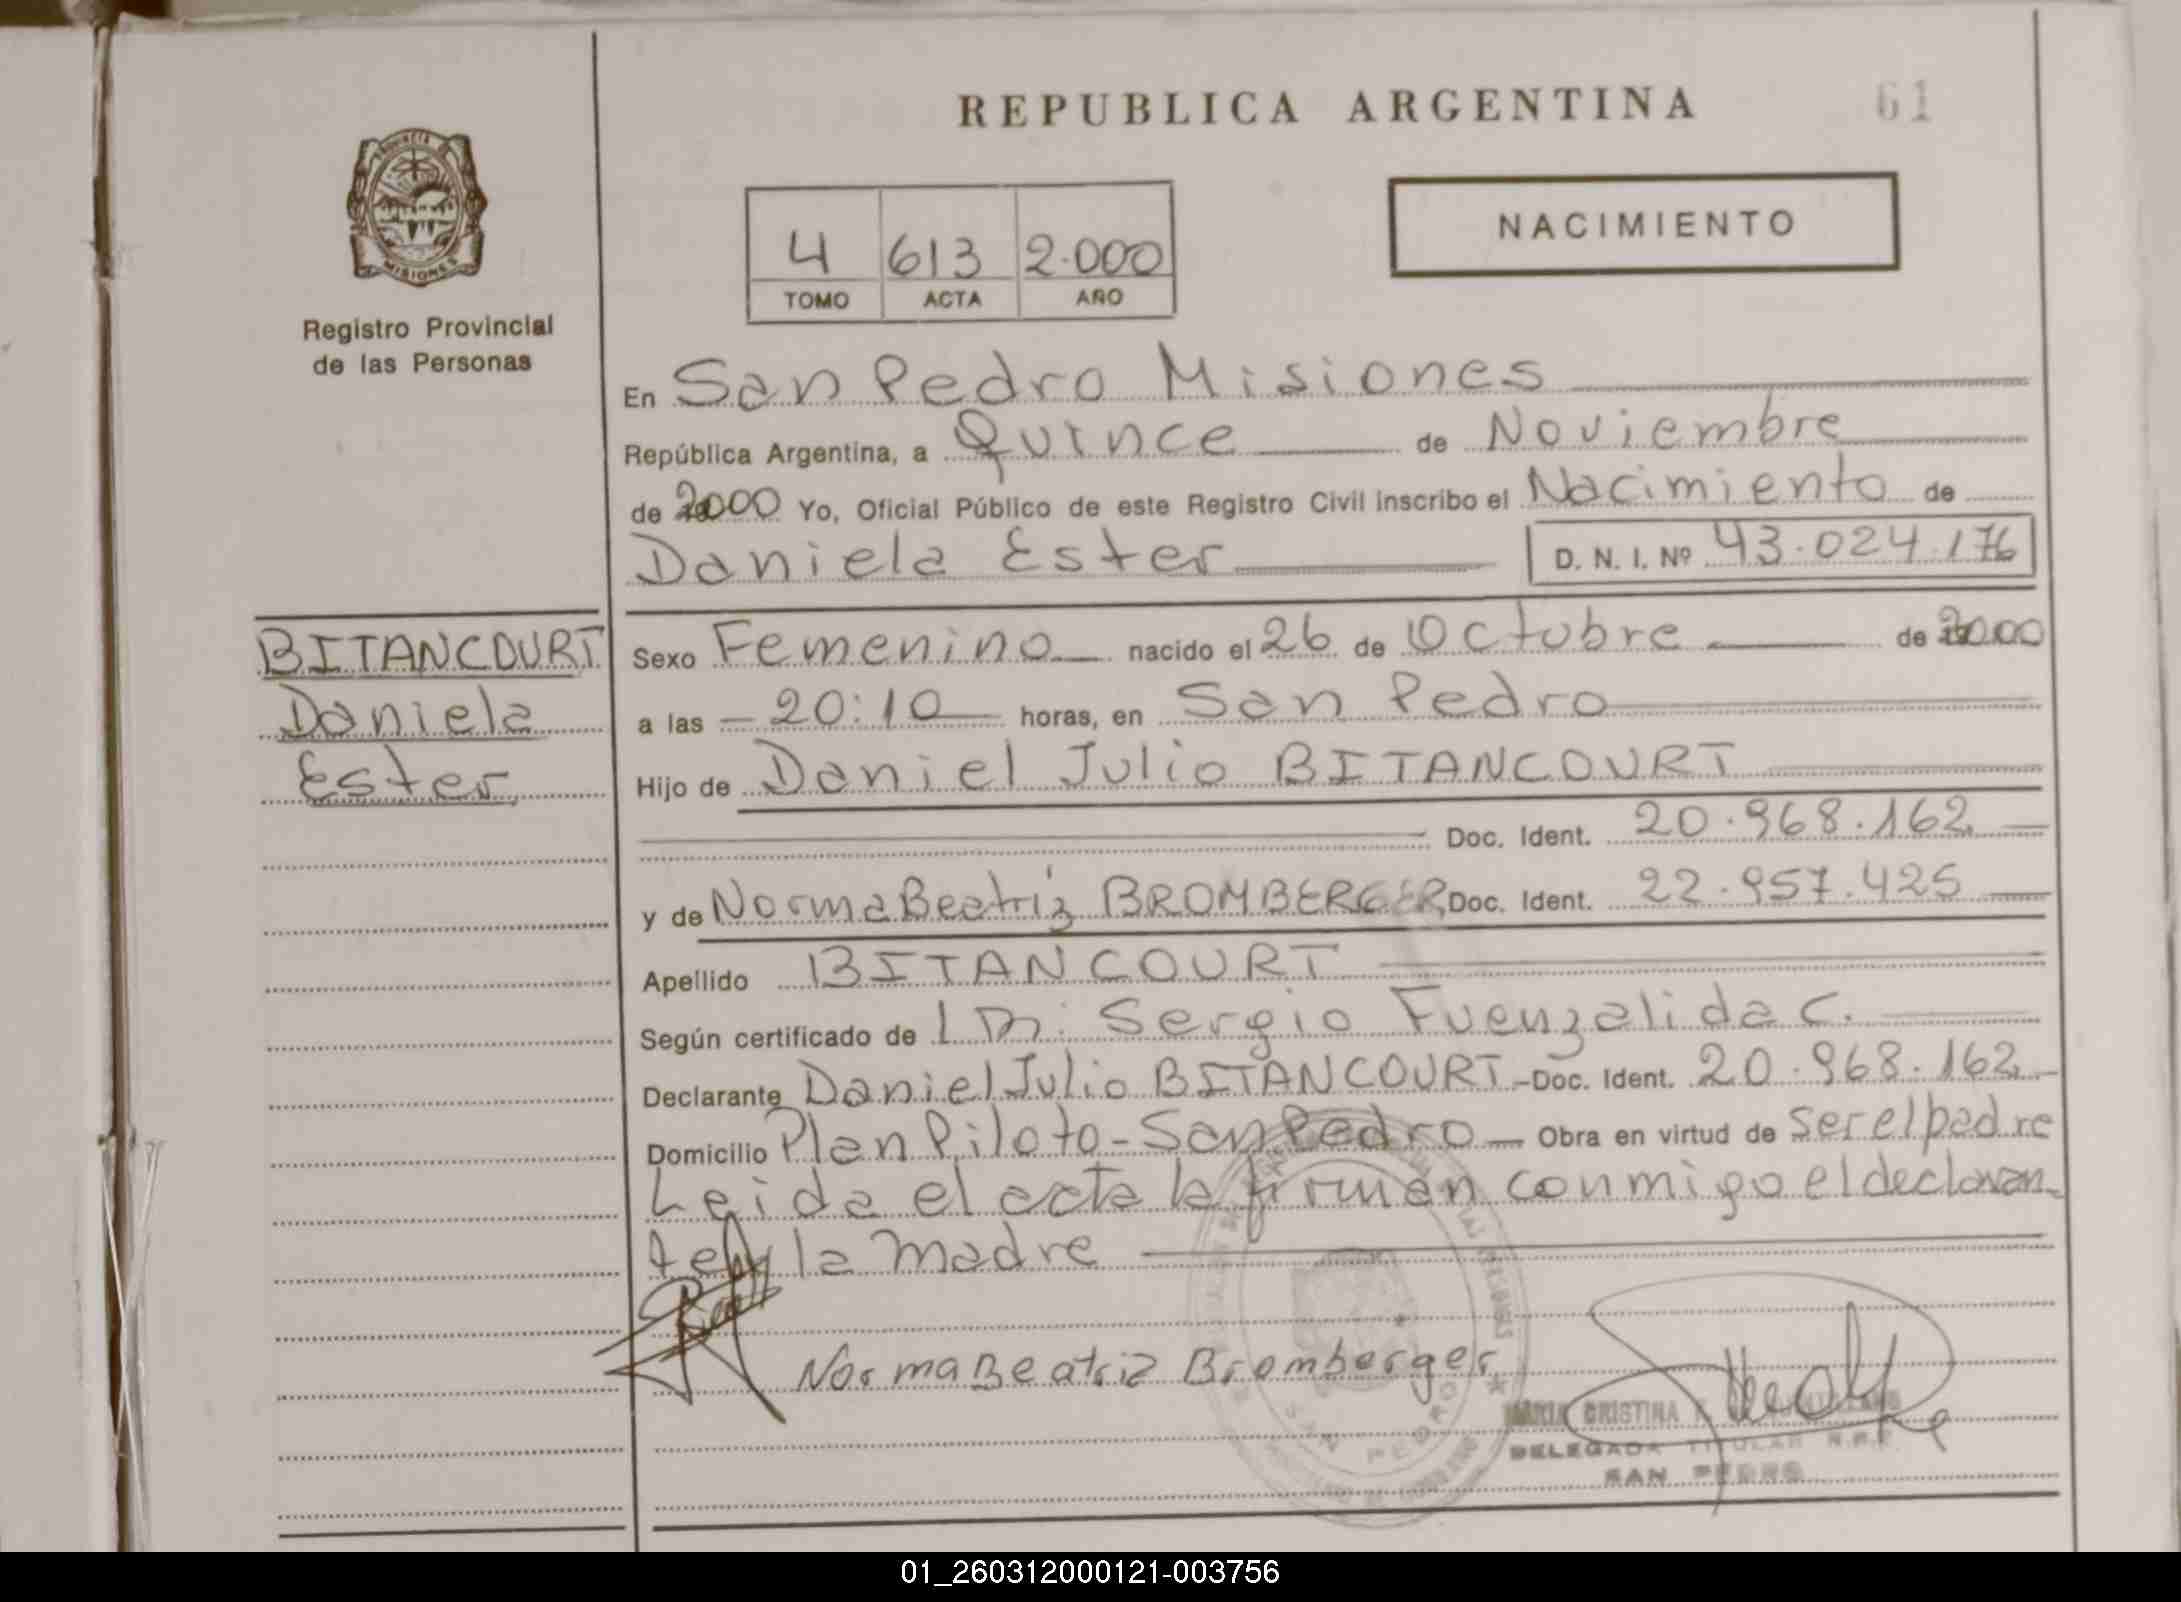 REPUBLICA ARGENTINA
61
PROVINCIA
MISIONES
Registro Provincial
de las Personas
NACIMIENTO
4 613 2.000
TOMO ACTA AÑO
En San Pedro Misiones
República Argentina, a Quince de Noviembre
de 2000 Yo, Oficial Público de este Registro Civil inscribo el Nacimiento de
Daniela Ester D. N. I. Nº 43.024.176
BITANCOURT
Daniela
Ester
Sexo Femenino nacido el 26 de Octubre de 2000
a las 20:10 horas, en San Pedro
Hijo de Daniel Julio BITANCOURT
Doc. Ident. 20.968.162
y de Norma Beatriz BROMBERGER Doc. Ident. 22.957.425
Apellido BITANCOURT
Según certificado de Sergio Fuenzalida C.
Declarante Daniel Julio BITANCOURT Doc. Ident. 20.968.162
Domicilio Plan Piloto - San Pedro Obra en virtud de ser el padre
Leida el acta la firman conmigo el declaran
te y la madre
Norma Beatriz Bromberger
MARIA CRISTINA
DELEGADA TITULAR R.P.P.
SAN PEDRO
SAN PEDRO
01_260312000121-003756